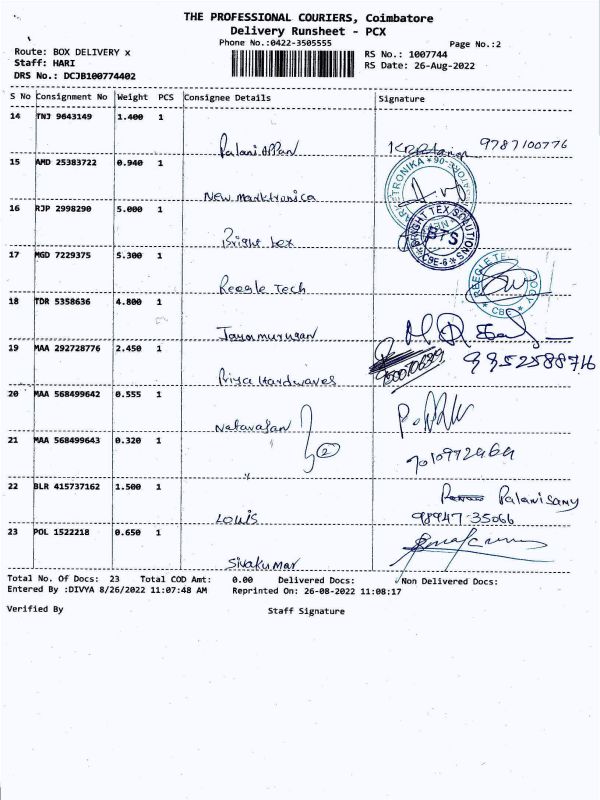 THE PROFESSIONAL COURIERS, Coimbatore
Delivery Runsheet - PCX
Phone No.:0422-3505555
Page No.:2
Route: BOX DELIVERY x
Staff: HARI
DRS No.: DCJB100774402
RS No.: 1007744
RS Date: 26-Aug-2022
S No Consignment No Weight PCS Consignee Details Signature
14 TNJ 9643149 1.400 1
Palaniappan 9787100776
15 AMD 25383722 0.940 1
New Marktronica
16 RJP 2998290 5.000 1
Bright tex
BRIGHT TEX SOLUTIONS
BTS
CBE-6
17 MGD 7229375 5.300 1
Reegle Tech
CBE
18 TDR 5358636 4.800 1
Jayamurugan
19 MAA 292728776 2.450 1
9952588716
Priya Hardwares
20 MAA 568499642 0.555 1
Natarajan
2
21 MAA 568499643 0.320 1
22 BLR 415737162 1.500 1
Palanisamy
Louis 98947-35066
23 POL 1522218 0.650 1
Sivakumar
Total No. Of Docs: 23 Total COD Amt: 0.00 Delivered Docs: Non Delivered Docs:
Entered By :DIVYA 8/26/2022 11:07:48 AM Reprinted On: 26-08-2022 11:08:17
Verified By Staff Signature